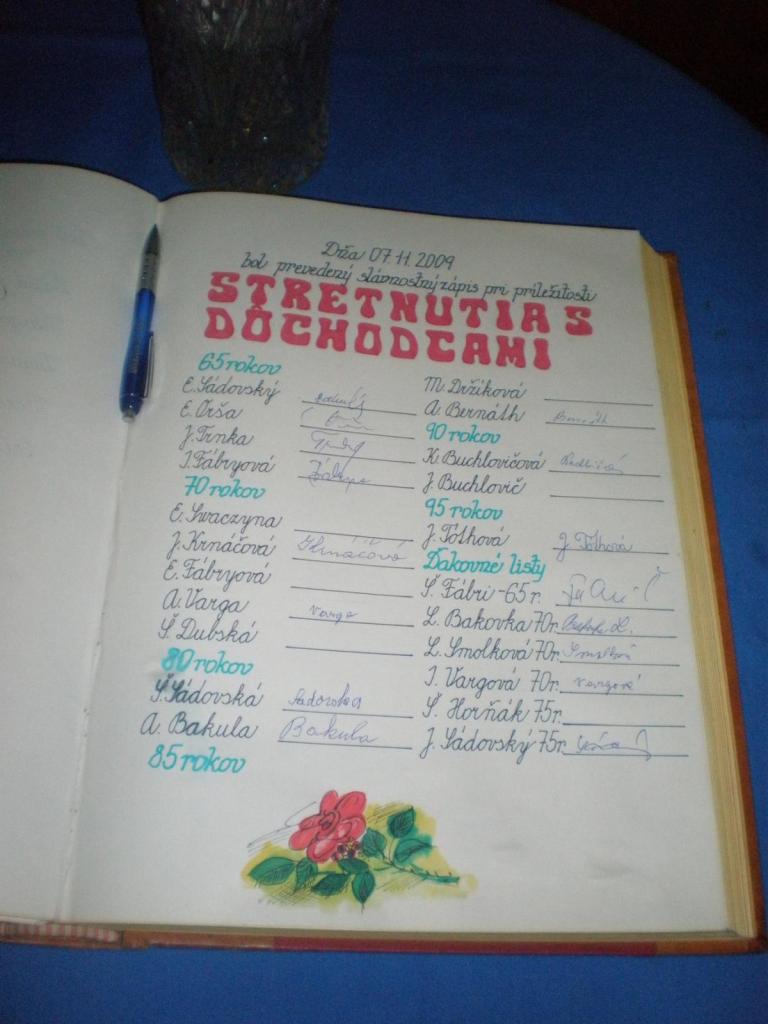 Dňa 07.11.2009
bol prevedený slávnostný zápis pri príležitosti
STRETNUTIA S
DÔCHODCAMI
65 rokov
E. Sádovský
E. Orša
J. Trnka
I. Fábryová
70 rokov
E. Swaczyna
J. Krnáčová Krnáčová
E. Fábryová
A. Varga Varga
Š. Dubská
80 rokov
Š. Sádovská Sádovská
A. Bakula Bakula
85 rokov
M. Držíková
A. Bernáth Bernáth
90 rokov
K. Buchlovičová
J. Buchlovič
95 rokov
J. Tóthová J. Tóthová
Ďakovné listy
Š. Fábri - 65 r.
L. Bakovka 70r.
L. Smolková 70r. Smolková
I. Vargová 70r. Vargová
Š. Horňák 75r.
J. Sádovský 75r.